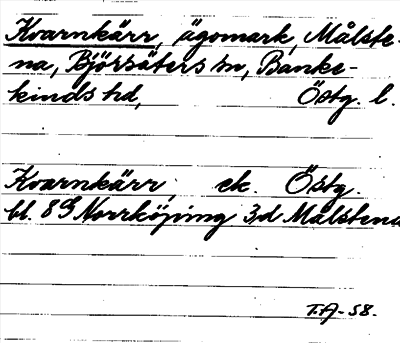 Kvarnkärr, ägomark, Målste-
na, Björsäters sn, Banke-
kinds hd, Östg. l.
Kvarnkärr, ek. Östg.
bl. 8G Norrköping 3d Målstena
T.A-58.